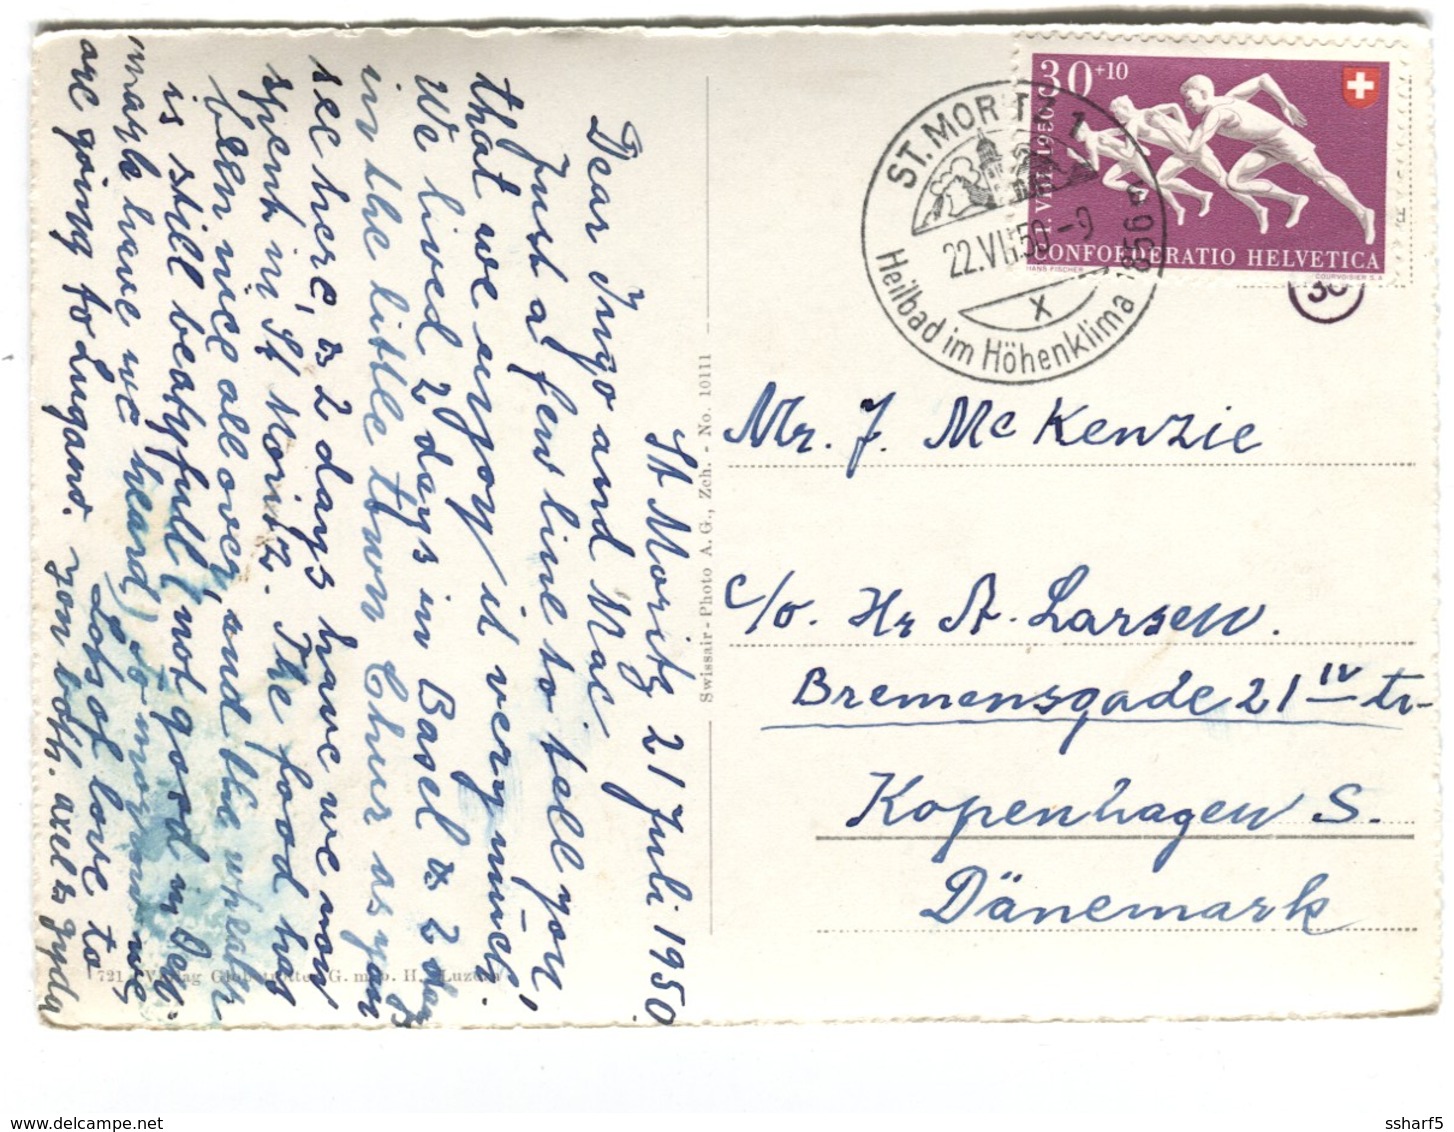 St Moritz 21 Juli. 1950.
Dear Ingo and Mac
Just a few line to tell you,
that we enjoy it very much.
We lived 2 days in Basel & 2 day
in the little town Chur as you
see here, & 2 days have we now
spent in St Moritz. The food has
been nice all over, and the wheath
is still beatyfull (not good in Den-
mark have we heard) to morgning we
are going to Lugano. Lots of love to
you both. Axel & Gyda
721 Verlag Globetrotter G. m. b. H., Luzern
Swissair-Photo A. G., Zch. - No. 10111
30+10
VIII 1950
CONFOEDERATIO HELVETICA
HANS FISCHER
COURVOISIER S.A.
ST. MORITZ 1
1856 m
22.VII.50-9
X
Heilbad im Höhenklima
30
Mr. J. McKenzie
c/o. Hr A. Larsen.
Bremensgade 21 IV tr.
Kopenhagen S.
Dänemark
delcampe.net
ssharf5